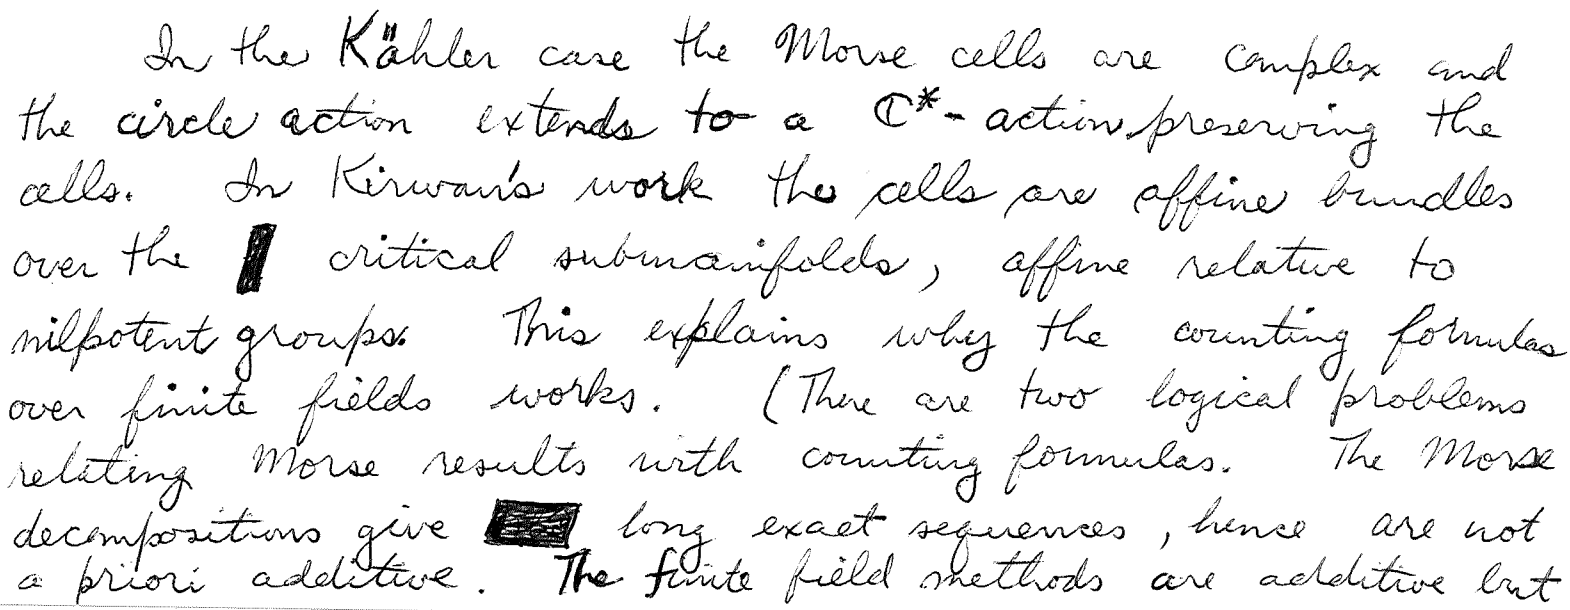 In the Kähler case the Morse cells are complex and
the circle action extends to a ℂ*-action preserving the
cells. In Kirwan's work the cells are affine bundles
over the critical submanifolds, affine relative to
nilpotent groups. This explains why the counting formulas
over finite fields works. (There are two logical problems
relating Morse results with counting formulas. The Morse
decompositions give long exact sequences, hence are not
a priori additive. The finite field methods are additive but